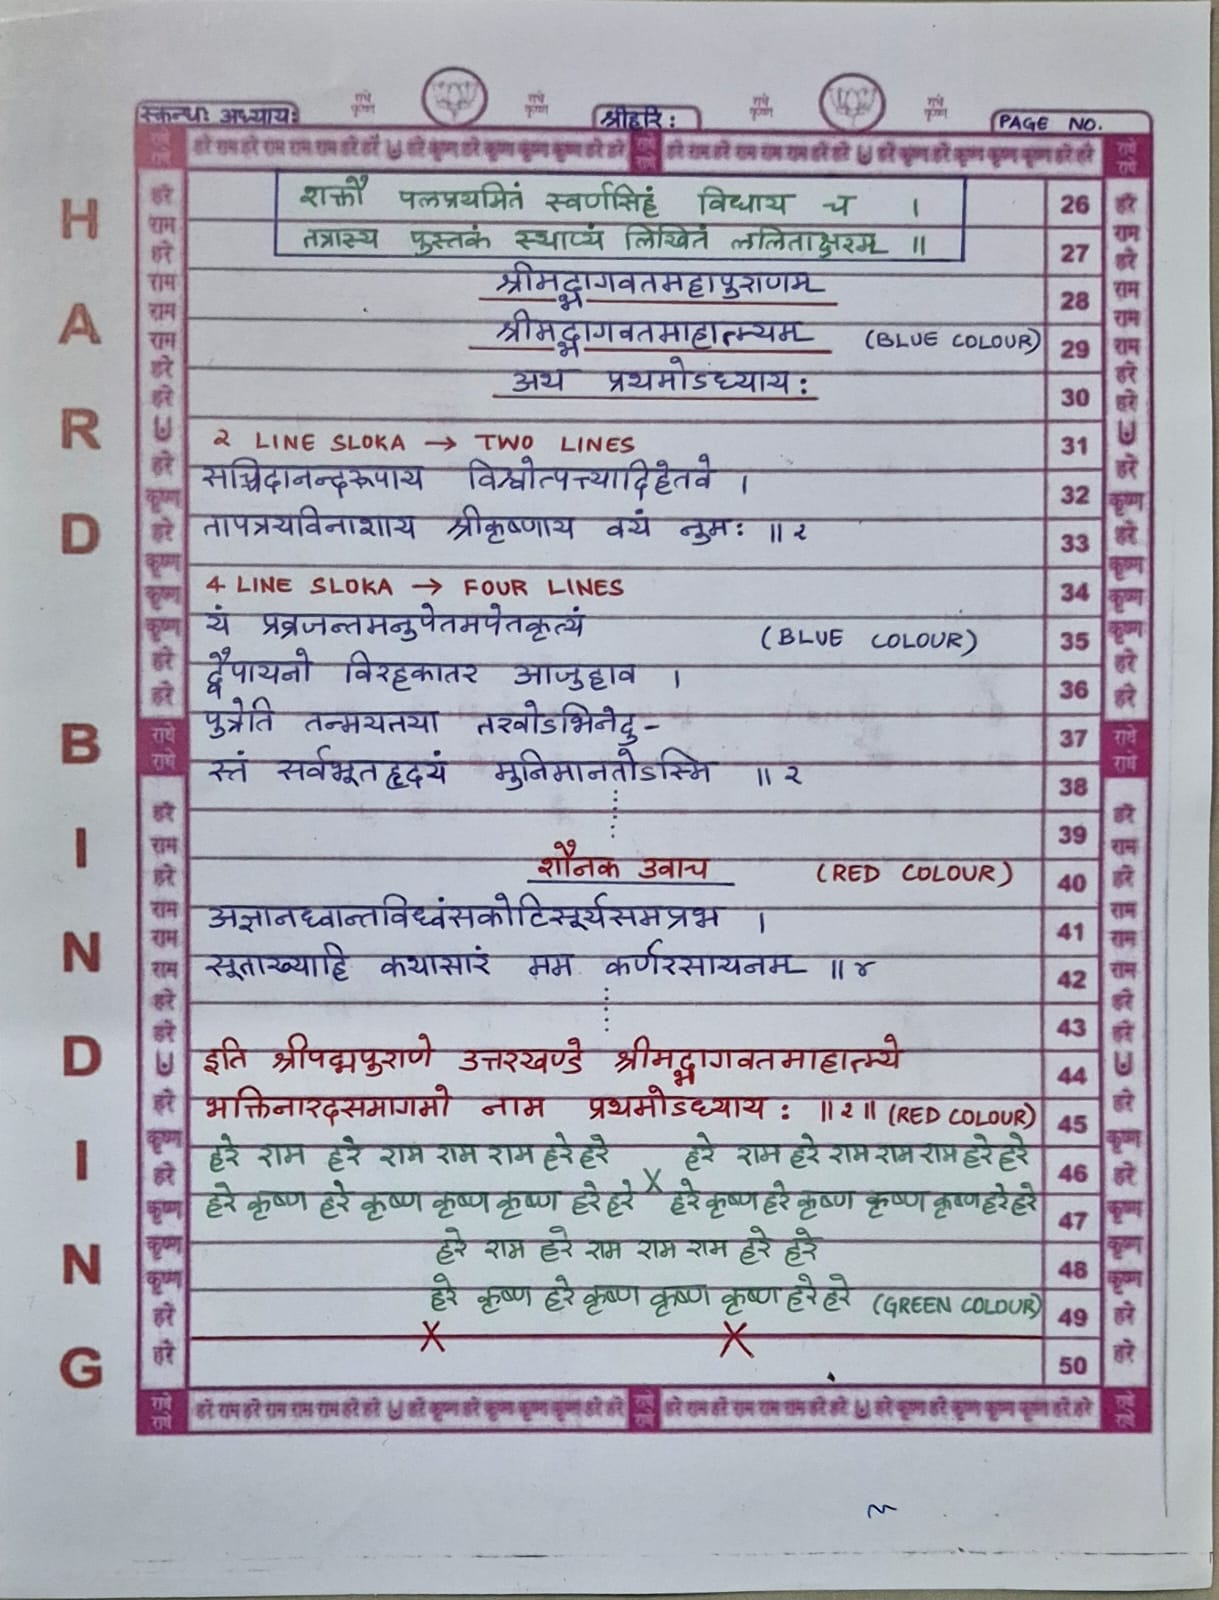 स्कन्धः अध्यायः राधे कृष्ण राधे कृष्ण श्रीहरिः राधे कृष्ण राधे कृष्ण PAGE NO.
राधे राधे हरे राम हरे राम राम राम हरे हरे हरे कृष्ण हरे कृष्ण कृष्ण कृष्ण हरे हरे राधे राधे हरे राम हरे राम राम राम हरे हरे हरे कृष्ण हरे कृष्ण कृष्ण कृष्ण हरे हरे राधे राधे
HARD BINDING
शक्तौ पलप्रयमितं स्वर्णसिहं विधाय च । 26
तत्रास्य पुस्तकं स्थाप्यं लिखितं ललिताक्षरम् ॥ 27
श्रीमद्भागवतमहापुराणम् 28
श्रीमद्भागवतमाहात्म्यम् (BLUE COLOUR) 29
अथ प्रथमोऽध्यायः 30
२ LINE SLOKA → TWO LINES 31
सच्चिदानन्दरूपाय विश्वोत्पत्त्यादिहेतवे । 32
तापत्रयविनाशाय श्रीकृष्णाय वयं नुमः ॥ १ 33
4 LINE SLOKA → FOUR LINES 34
यं प्रव्रजन्तमनुपेतमपेतकृत्यं (BLUE COLOUR) 35
द्वैपायनो विरहकातर आजुहाव । 36
पुत्रेति तन्मयतया तरवोऽभिनेदु- 37
स्तं सर्वभूतहृदयं मुनिमानतोऽस्मि ॥ २ 38
39
शौनक उवाच (RED COLOUR) 40
अज्ञानध्वान्तविध्वंसकोटिसूर्यसमप्रभ । 41
सूताख्याहि कथासारं मम कर्णरसायनम् ॥ ४ 42
43
इति श्रीपद्मपुराणे उत्तरखण्डे श्रीमद्भागवतमाहात्म्ये 44
भक्तिनारदसमागमो नाम प्रथमोऽध्यायः ॥ १ ॥ (RED COLOUR) 45
हरे राम हरे राम राम राम हरे हरे X हरे राम हरे राम राम राम हरे हरे 46
हरे कृष्ण हरे कृष्ण कृष्ण कृष्ण हरे हरे हरे कृष्ण हरे कृष्ण कृष्ण कृष्ण हरे हरे 47
हरे राम हरे राम राम राम हरे हरे 48
हरे कृष्ण हरे कृष्ण कृष्ण कृष्ण हरे हरे (GREEN COLOUR) 49
X X 50
राधे राधे हरे राम हरे राम राम राम हरे हरे हरे कृष्ण हरे कृष्ण कृष्ण कृष्ण हरे हरे राधे राधे हरे राम हरे राम राम राम हरे हरे हरे कृष्ण हरे कृष्ण कृष्ण कृष्ण हरे हरे राधे राधे